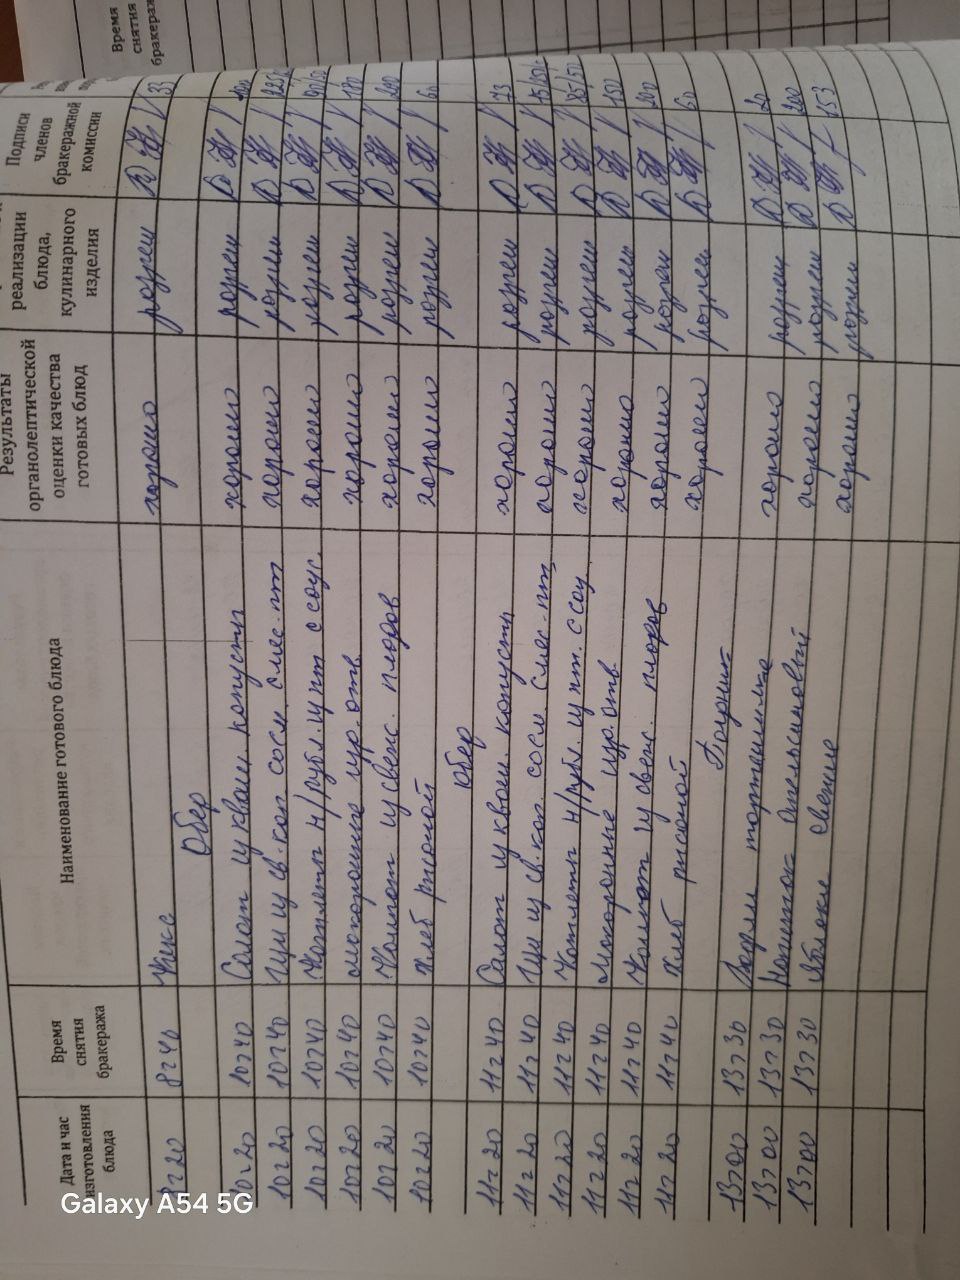 Дата и час изготовления блюда
Время снятия бракеража
Наименование готового блюда
Результаты органолептической оценки качества готовых блюд
реализации блюда, кулинарного изделия
Подписи членов бракеражной комиссии
Время снятия бракераж
20 8 40 Кекс хорошо разреш 33
Обед
10 20 10 40 Салат из кваш. капусты хорошо разреш
10 20 10 40 Щи из св. кап. со см. смес. пт хорошо разреш
10 20 10 40 Котлеты н/рубл. из пт с соус. хорошо разреш
10 20 10 40 Макаронные изд. отв хорошо разреш 180
10 20 10 40 Компот из свеж. плодов хорошо разреш 200
10 20 10 40 Хлеб ржаной хорошо разреш 60
Обед
11 20 11 40 Салат из кваш. капусты хорошо разреш 73
11 20 11 40 Щи из св. кап. со см. смес. пт, хорошо разреш
11 20 11 40 Котлеты н/рубл. из пт. с соу хорошо разреш 85/50
11 20 11 40 Макаронные изд. отв. хорошо разреш 150
11 20 11 40 Компот из свеж. плодов хорошо разреш 200
11 20 11 40 Хлеб ржаной хорошо разреш 60
Полдник
13 00 13 30 хорошо разреш 20
13 00 13 30 Напиток Апельсиновый хорошо разреш 200
13 00 13 30 Яблоки свежие хорошо разреш 153
Galaxy A54 5G